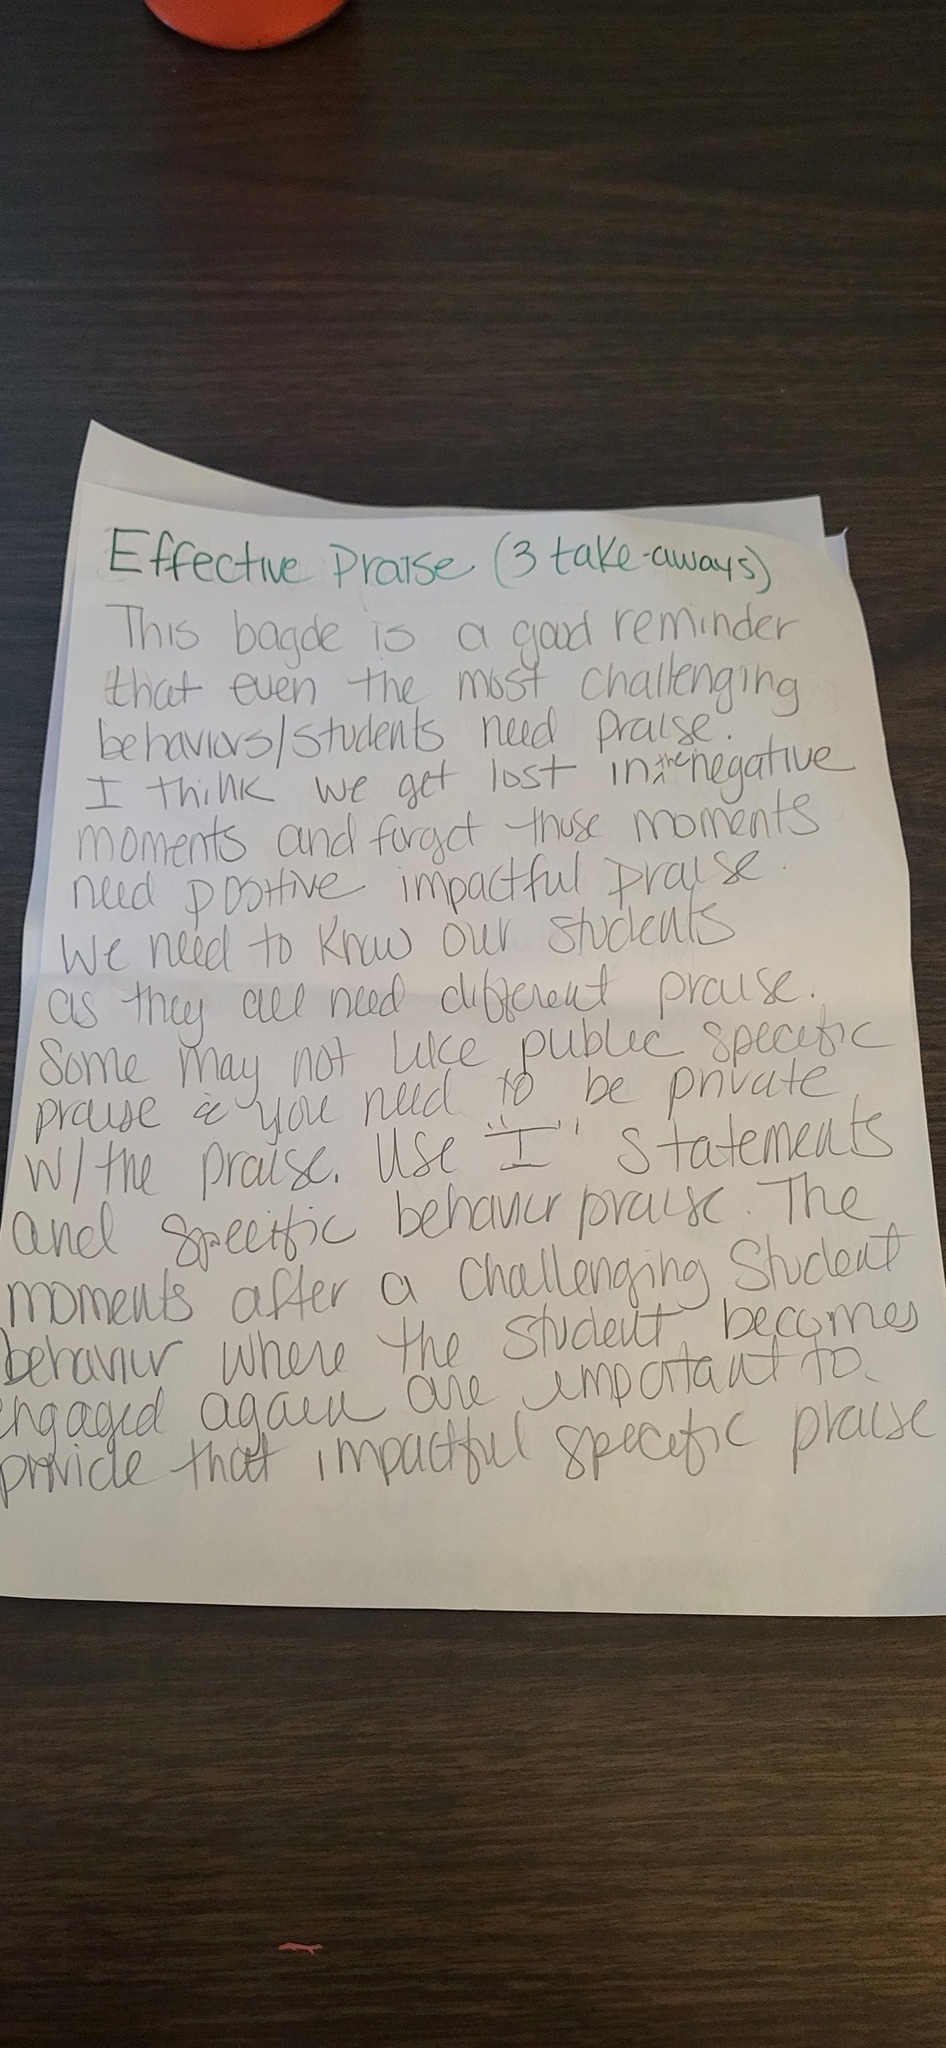 Effective Praise (3 take-aways)
This bagde is a good reminder
that even the most challenging
behaviors/students need praise.
I think we get lost in the negative
moments and forget those moments
need postive impactful praise.
We need to know our students
as they all need different praise.
Some may not like public specific
praise & you need to be private
w/the praise. Use "I" statements
and specific behavior praise. The
moments after a challenging student
behavior where the student becomes
engaged again are important to
provide that impactful specific praise